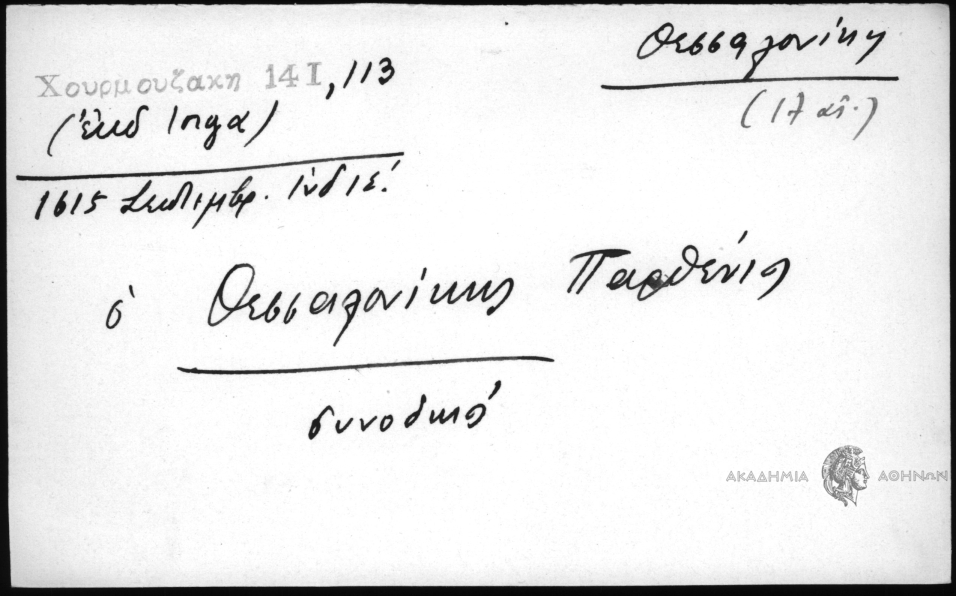 Θεσσαλονίκη
(17 αἰ.)
Χουρμουζακη 14 I, 113
(ἐκδ Ιοργα)
1615 Σεπτεμβρ. ἰνδ ιε!
ὁ Θεσσαλονίκης Παρθένιος
συνοδικός
ΑΚΑΔΗΜΙΑ ΑΘΗΝΩΝ